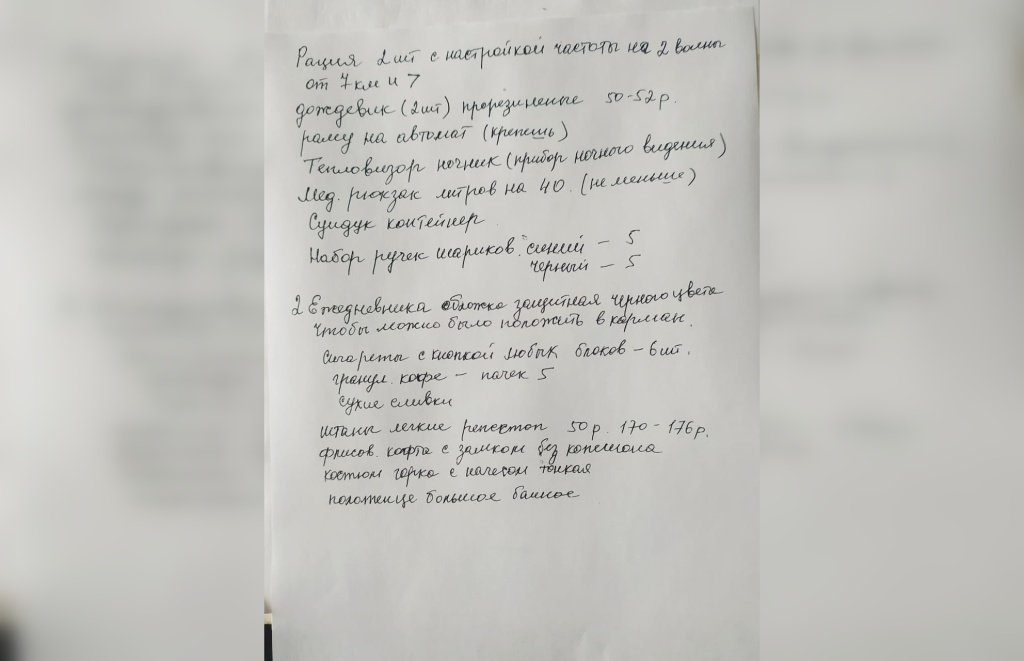 Рация 2 шт с настройкой частоты на 2 волны
от 7 км и >
дождевик (2шт) прорезиненые 50-52 р.
раму на автомат (крепешь)
Тепловизор ночник (прибор ночного видения)
Мед. рюкзак литров на 40. (не меньше)
Сундук контейнер
Набор ручек шариков. синий – 5
черный – 5
2 Ежедневника обложка защитная черного цвета
чтобы можно было положить в карман.
Сигареты с кнопкой любых блоков – 6 шт.
гранул. кофе – пачек 5
сухие сливки
штаны легкие репстоп 50 р. 170 - 176 р.
флисов. кофта с замком без капюшона
костюм горка с начесом тонкая
полотенце большое банное